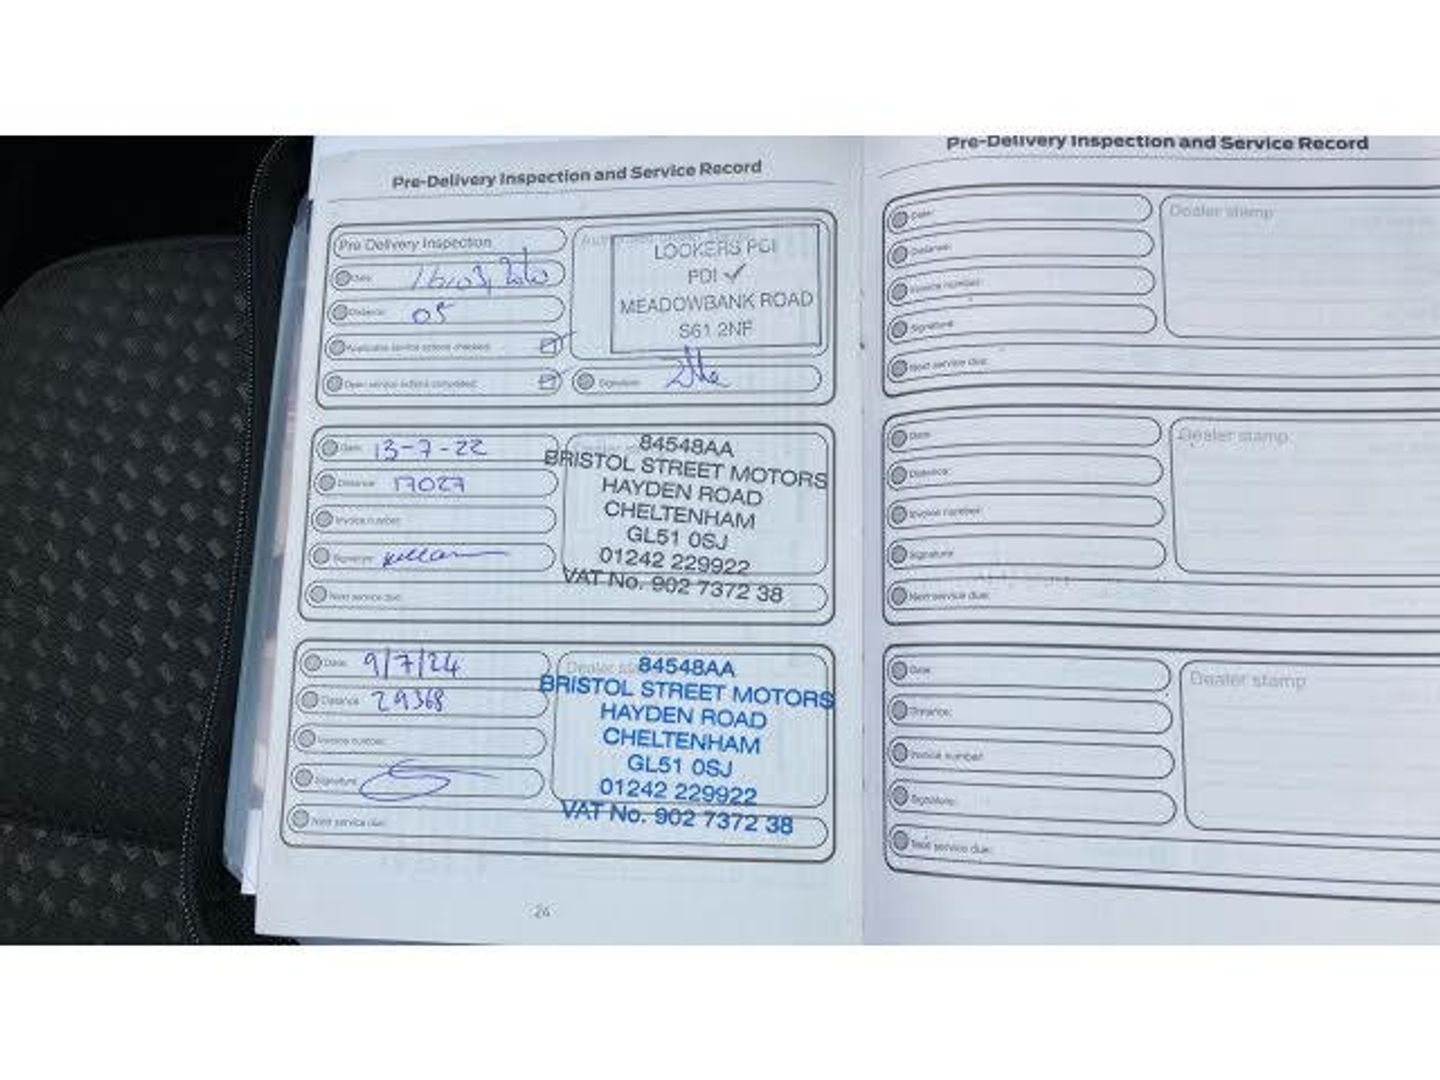 Pre-Delivery Inspection and Service Record
Pre Delivery Inspection
Date: 16/03/2020
Distance: 05
Applicable service actions checked:
Open service actions completed:
LOOKERS PDI
PDI ✓
MEADOWBANK ROAD
S61 2NF
Signature:
Date: 13-7-22
Distance: 17027
Invoice number:
Signature:
Next service due:
84548AA
BRISTOL STREET MOTORS
HAYDEN ROAD
CHELTENHAM
GL51 0SJ
01242 229922
VAT No. 902 7372 38
Date: 9/7/24
Distance: 29368
Invoice number:
Signature:
Next service due:
Dealer
84548AA
BRISTOL STREET MOTORS
HAYDEN ROAD
CHELTENHAM
GL51 0SJ
01242 229922
VAT No. 902 7372 38
Pre-Delivery Inspection and Service Record
Date:
Distance:
Invoice number:
Signature:
Next service due:
Dealer stamp
Date:
Distance:
Invoice number:
Signature:
Next service due:
Dealer stamp
Date:
Distance:
Invoice number:
Signature:
Next service due:
Dealer stamp